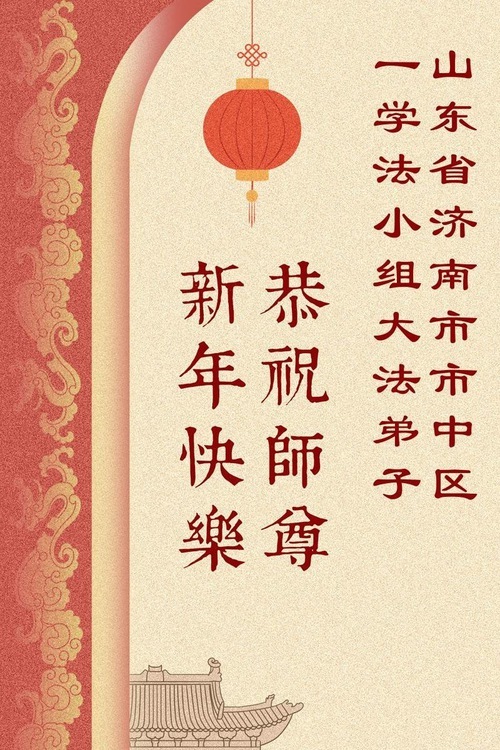 山东省济南市市中区
一学法小组大法弟子
恭祝師尊
新年快樂